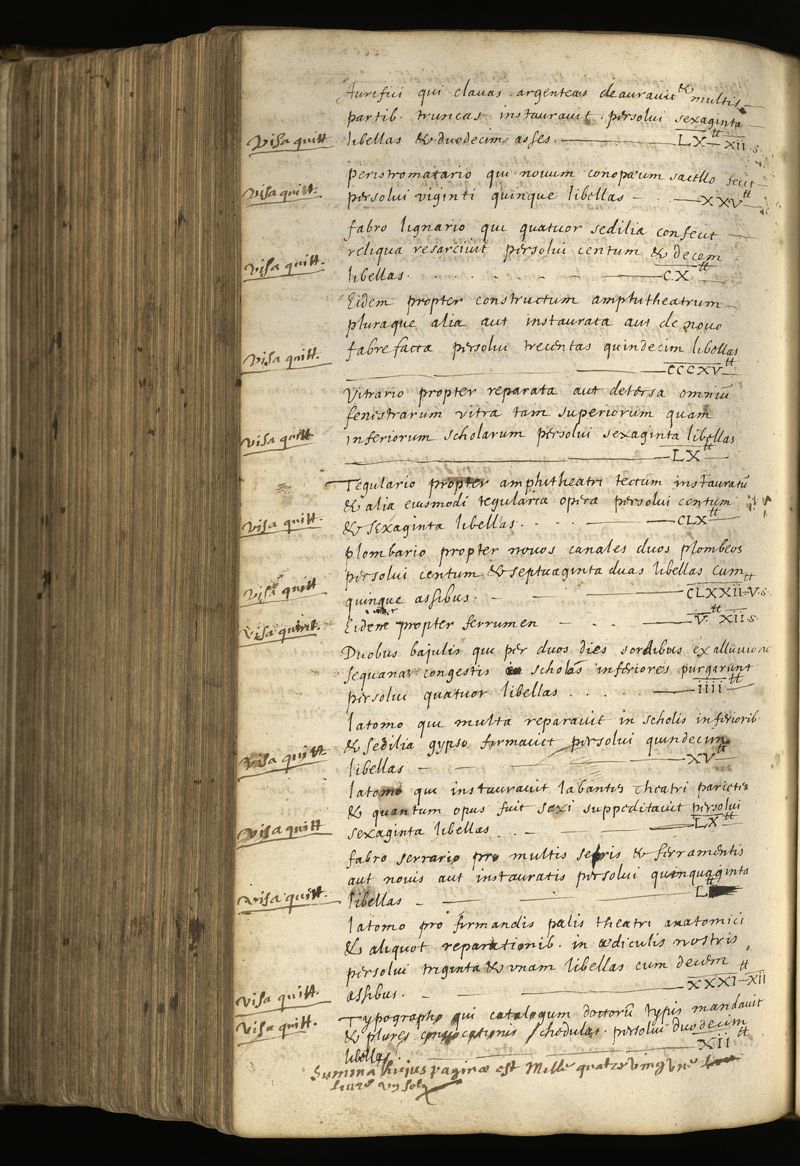 Aurifici qui clavas argenteas deauravit & multis
partib. truncas instauravit persolui sexaginta
Visa quitt. libellas & duodecim asses. LX tt XII s.
peristromatario qui novum conopæum sacello fecit
Visa quitt. persolui viginti quinque libellas XXV tt
fabro lignario qui quatuor sedilia confecit
reliqua resarcivit persolui centum & decem
Visa quitt. libellas. C.X. tt
Eidem propter constructum amphitheatrum
pluraque alia aut instaurata aut de novo
Visa quitt. fabrefacta persolui trecentas quindecim libellas
CCCXV tt
Vitrario propter reparata aut detersa omniū
fenestrarum vitra tam superiorum quam
Visa quitt. inferiorum scholarum persolui sexaginta libellas
LX tt
Tegulario propter amphitheatri tectum instauratū
& alia eiusmodi tegularia opera persolui centum
Visa quitt. & sexaginta libellas. CLX tt
plombario propter novos canales duos plombeos
persolui centum & septuaginta duas libellas cum
Visa quitt quinque assibus. CLXXII tt V s.
Visa quitt. Eidem propter ferrumen V. tt XII s
Duobus bajulis qui per duos dies sordibus ex alluvione
sequanæ congestis scholas inferiores purgarunt
persolui quatuor libellas IIII tt
latomo qui multa reparavit in scholis inferiorib.
& sedilia gypso firmavit persolui quindecim
Visa quitt. libellas XV tt
latomo qui instauravit labantes theatri parietes
& quantum opus fuit saxi suppeditavit persolui
Visa quitt sexaginta libellas LX tt
fabro serrario pro multis seris & ferramentis
aut novis aut instauratis persolui quinquaginta
Visa quitt. libellas L tt
latomo pro firmandis palis theatri anatomici
& aliquot reparationib. in ædiculis nostris
persolui triginta & unam libellas cum decem
Visa quitt. assibus. XXXI tt XII
Visa quitt. Typographo qui catalogum doctorū typis mandavit
& plures convocationis schedulas persolui duodecim
libellas. XII tt
Summa hujus paginæ est Mille quatre vingt une
livre